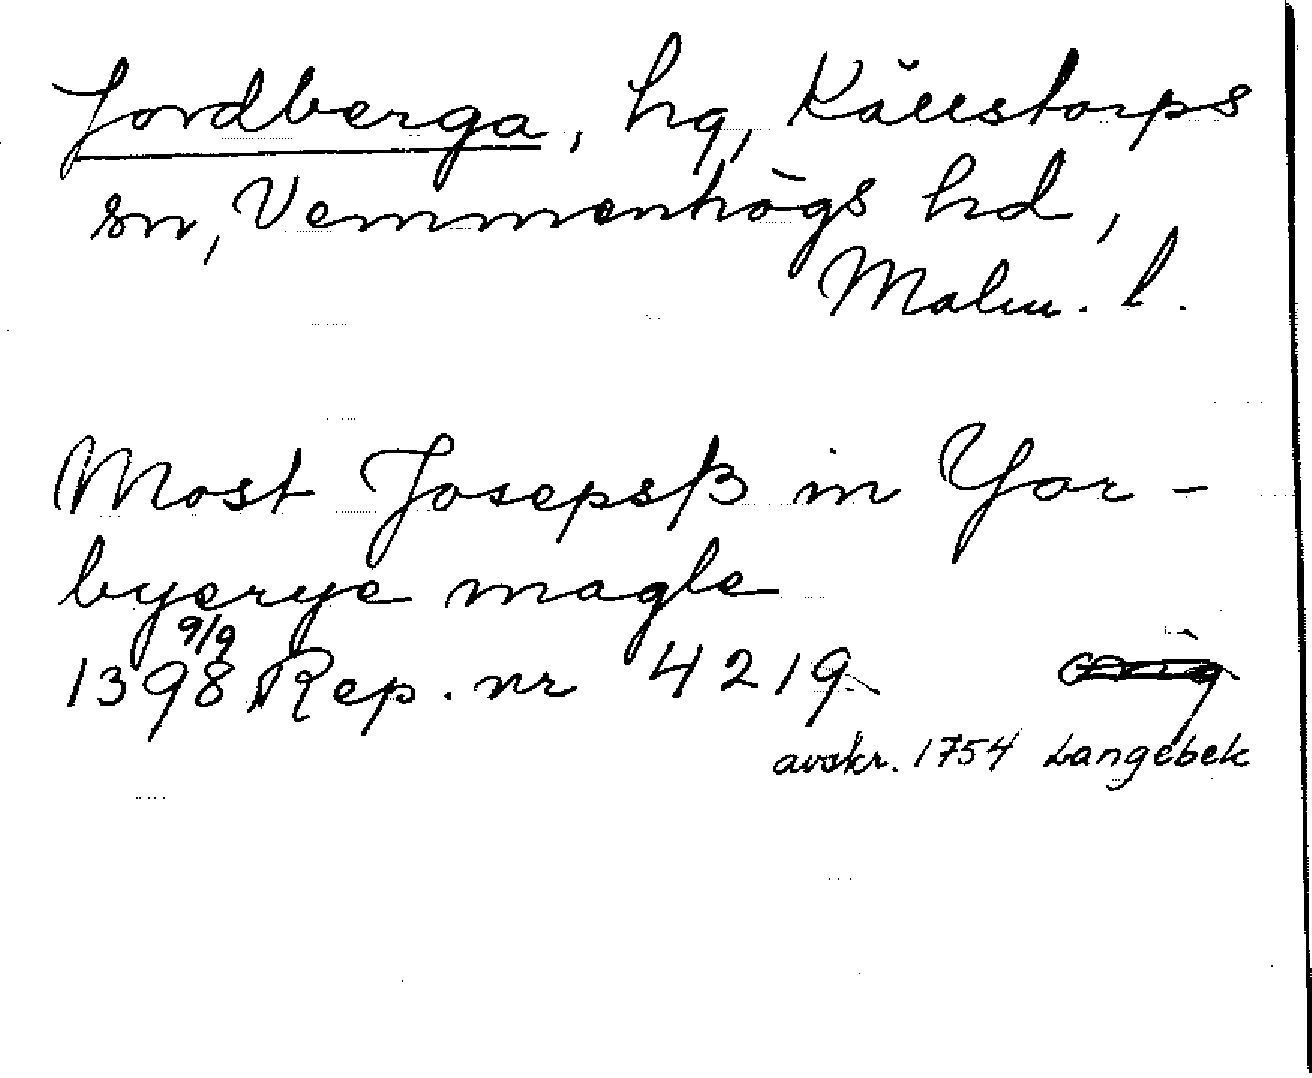 Jordberga, hg, Källstorps
sn, Vemmenhögs hd,
Malm. l.
Most Josepsß in Yor-
byerye magle
1398 9/9 Rep. nr 4219
avskr. 1754 Langebek